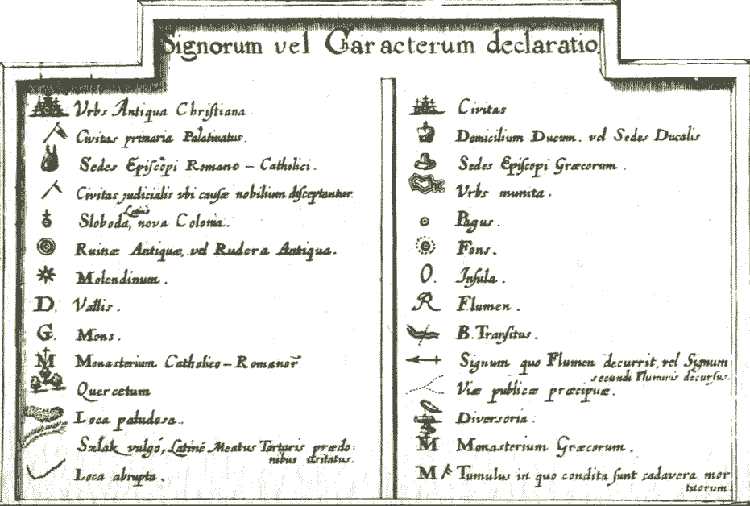 Signorum vel Caracterum declaratio
Vrbs Antiqua Christiana.
Civitas primaria Palatinatus.
Sedes Episcopi Romano - Catholici.
Civitas judicialis vbi causæ nobilium disceptantur
Sloboda, Latinè nova Colonia.
Ruinæ Antiquæ, vel Rudera Antiqua.
Molendinum.
D. Vallis.
G. Mons.
M Monasterium Catholico-Romanor̄
Quercetum
Loca paludosa.
Szlak vulgó, Latinè Meatus Tartaris prædo:
nibus usitatus.
Loca abrupta.
Civitas
Domicilium Ducum. vel Sedes Ducalis
Sedes Episcopi Græcorum.
Vrbs munita.
Pagus.
Fons.
O. Insula.
R Flumen.
B. Transitus.
Signum quo Flumen decurrit, vel Signum
secundi Fluminis decursus.
Viæ publicæ præcipuæ.
Diversoria.
M Monasterium Græcorum.
M Tumulus in quo condita sunt cadavera mor
tuorum.